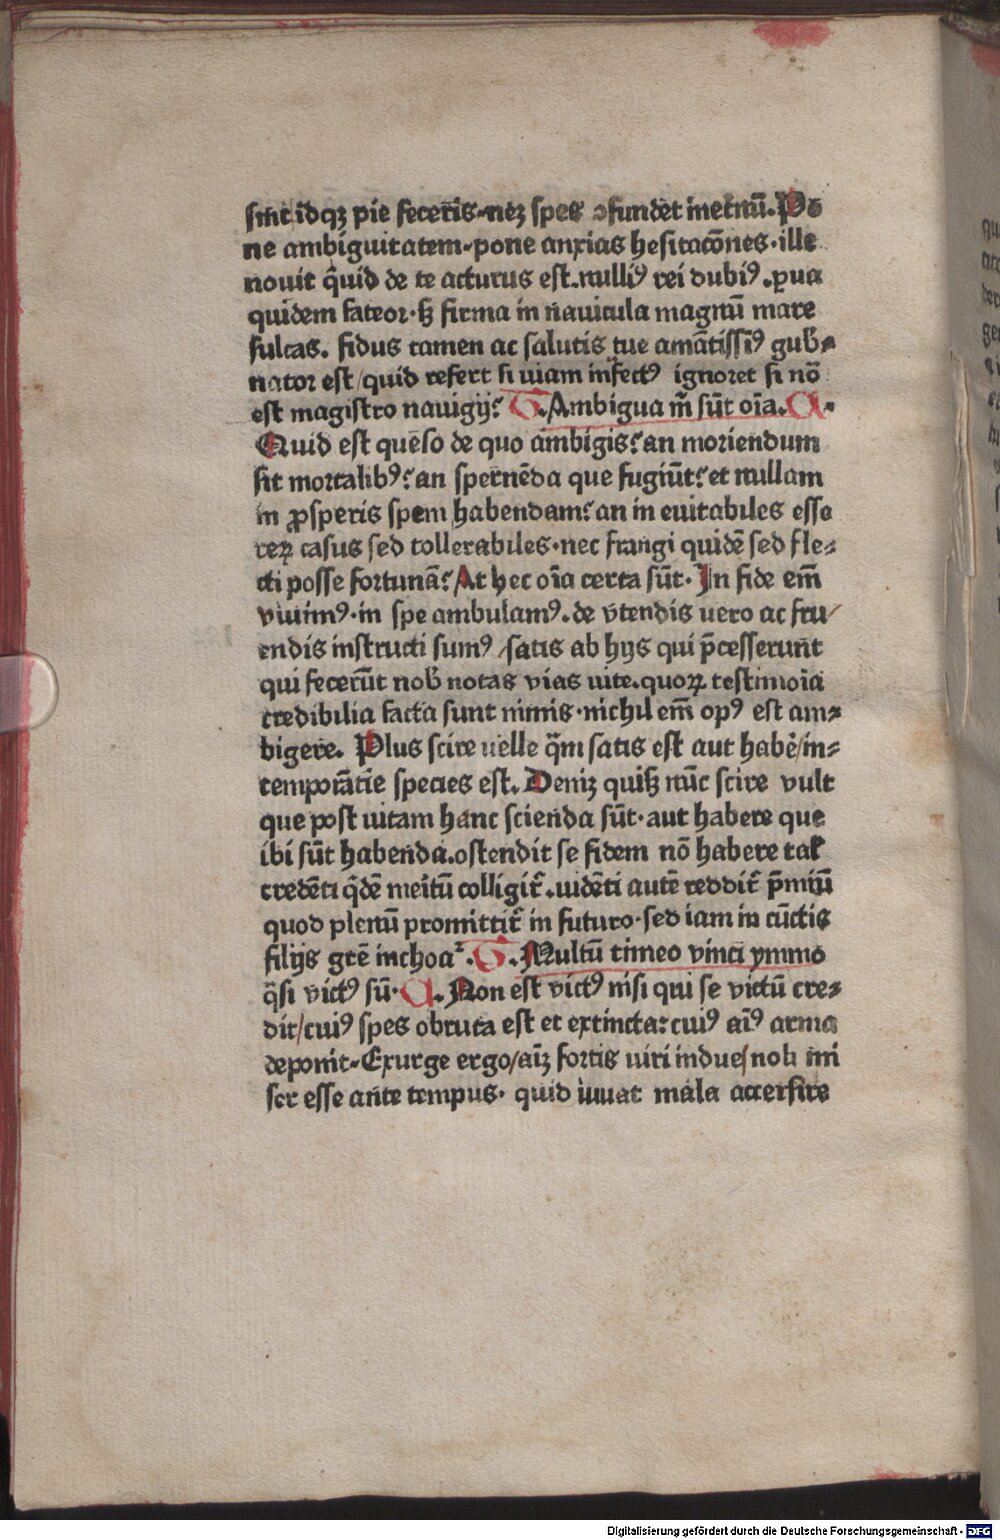 sint idqꝫ pie feceris·neꝫ spes ꝯfundet metꝛnū. Po
ne ambiguitatem·pone anxias hesitacōnes·ille
nouit q̄uid de te acturus est. nulliꝰ rei dubiꝰ. ꝑua
quidem fateor·sꝫ firma in nauicula magnū mare
sulcas. fidus tamen ac salutis tue amātissiꝰ gub̄⸗
nator est/quid refert si uiam infectꝰ ignoret si nō
est magistro nauigij? G. Ambigua m̄ sūt oīa. A.
Quid est queso de quo ambigis? an moriendum
sit mortalibꝰ? an spernēda que fugiūt? et nullam
in ꝓsperis spem habendam? an in euitabiles esse
reꝝ casus sed tollerabiles·nec frangi quidē sed fle⸗
cti posse fortunā? At hec oīa certa sūt. In fide em̄
viuimꝰ·in spe ambulamꝰ. de vtendis uero ac fru/
endis instructi sumꝰ/satis ab hijs qui p̄cesserunt
qui fecerūt nob̄ notas vias uite. quoꝝ testimoīa
credibilia facta sunt nimis·nichil em̄ opꝰ est am⸗
bigere. Plus scire uelle q̄m satis est aut habē/in⸗
temporātie species est. Deniꝫ quisꝫ nūc scire vult
que post uitam hanc scienda sūt·aut habere que
ibi sūt habenda. ostendit se fidem nō habere tal̄
credēti q̄dē meitū colligit̄. uidēti autē reddit̄ p̄miū
quod plenū promittit̄ in futuro·sed iam in cūctis
filijs grē inchoaᷣ. G. Multū timeo vinci ymmo
q̄si victꝰ sū. A. Non est victꝰ nisi qui se victū cre⸗
dit/cuiꝰ spes obruta est et extincta: cuiꝰ aīꝰ arma
deponit. Exurge ergo/aīꝫ fortis uiri indue/noli mi
ser esse ante tempus. quid iuuat mala accersire
Digitalisierung gefördert durch die Deutsche Forschungsgemeinschaft - DFG